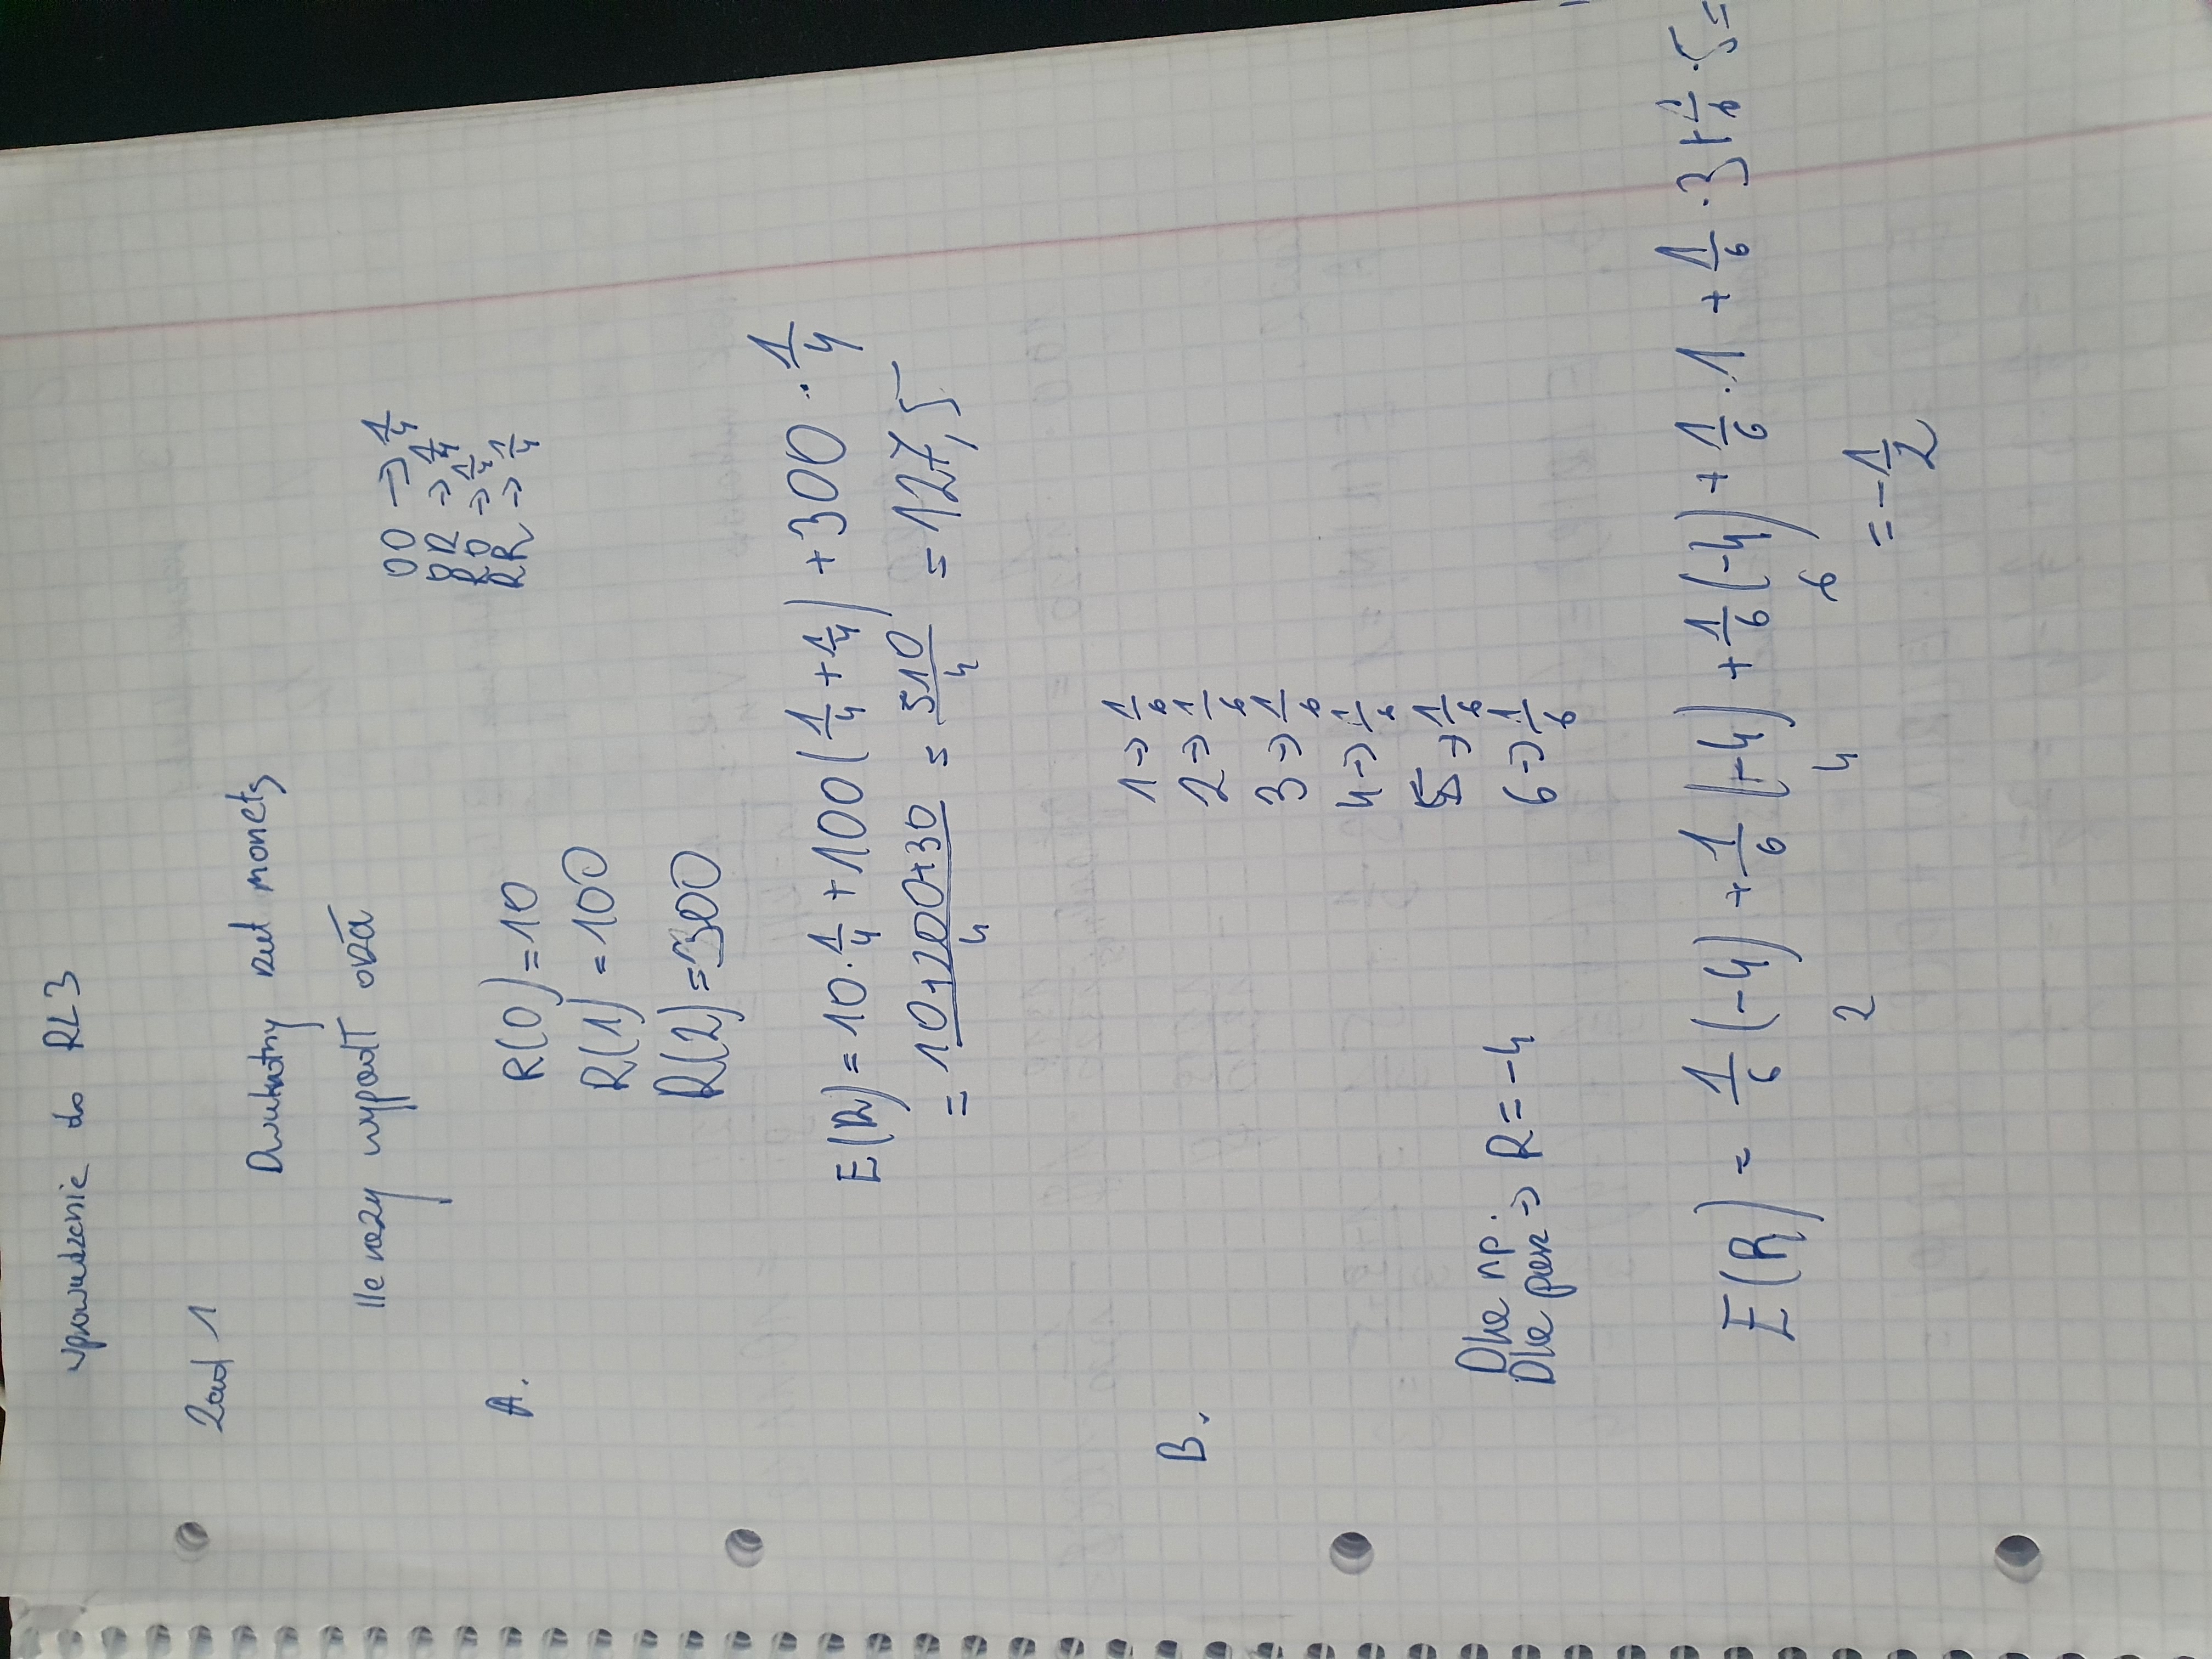 wprowadzenie do RL3
Zad 1
Dwukrotny rzut monetą
Ile razy wypadł orzeł
A.
R(0) = 10
R(1) = 100
R(2) = 300
OO → 1/4
OR → 1/4
RO → 1/4
RR → 1/4
E(R) = 10 · 1/4 + 100 (1/4 + 1/4) + 300 · 1/4
= 10+200+30 / 4 = 510 / 4 = 127,5
B.
1 → 1/6
2 → 1/6
3 → 1/6
4 → 1/6
5 → 1/6
6 → 1/6
Dla np.
Dla parz → R = -4
E(R) = 1/6 (-4) + 1/6 (-4) + 1/6 (-4) + 1/6 · 1 + 1/6 · 3 + 1/6 · 5 =
2 4 6
= - 1/2